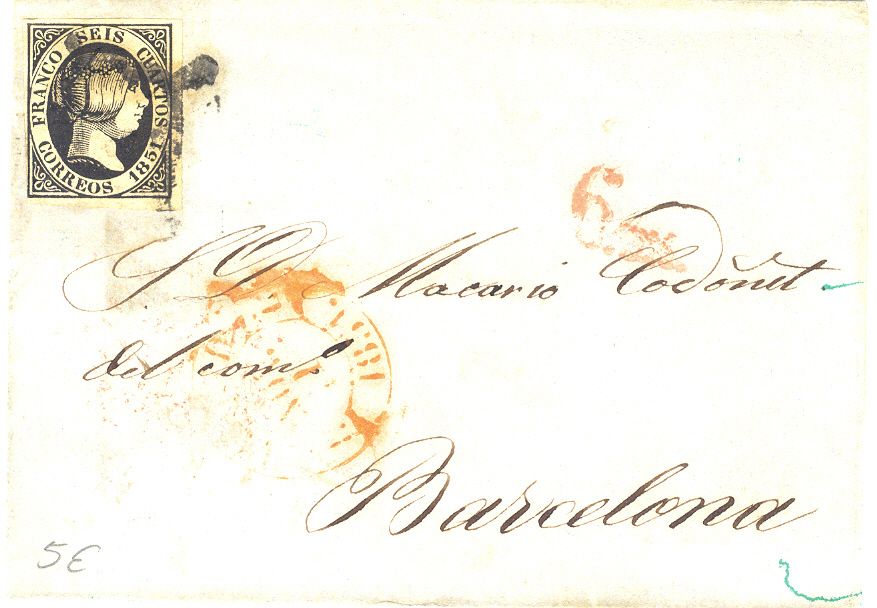 FRANCO SEIS CUARTOS
CORREOS 1851
6
S. D. Macario Codoñet
del com.º
1851
Barcelona
5€